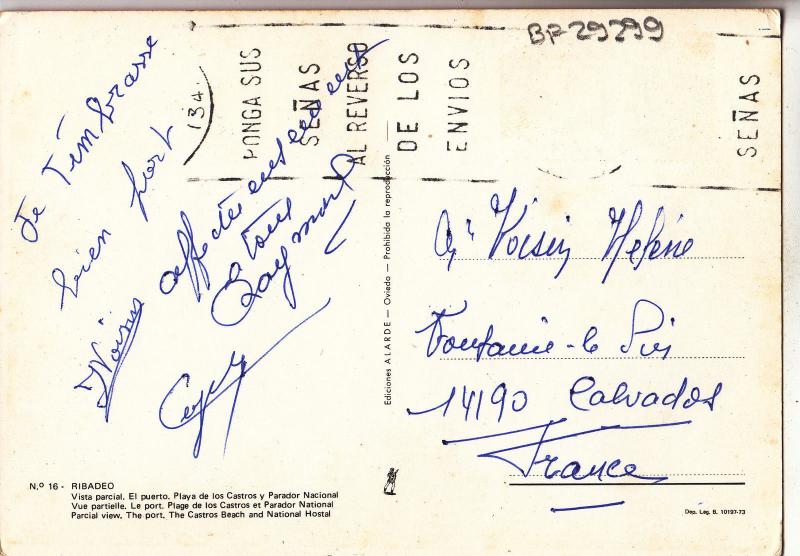 BP 29299
134
PONGA SUS
SEÑAS
AL REVERSO
DE LOS
ENVIOS
SEÑAS
Je t'imbrasse
bien fort
affectueusement
à tous
Raymond
Voisin Helène
Fontaine-le Pin
14190 Calvados
France
Ediciones ALARDE — Oviedo — Prohibida la reproducción
N.º 16 - RIBADEO
Vista parcial. El puerto. Playa de los Castros y Parador Nacional
Vue partielle. Le port. Plage de los Castros et Parador National
Parcial view. The port. The Castros Beach and National Hostal
Dep. Leg. B. 10197-73